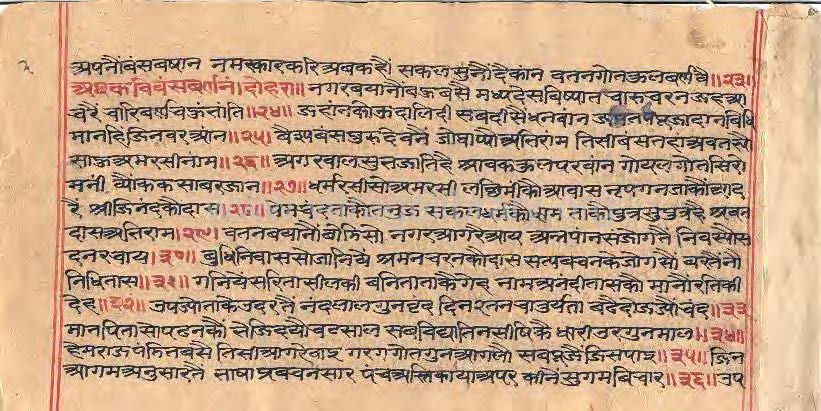 अपनौंवंसबषांन नमस्कारकरिअबकहौं सकलसुनौंदैकांन वतनगोतकुलबर्णवै॥२३॥
अथकविवंसबर्णनं।दोहरा॥ नगरबयानोंबऊबसै मध्यदेसविष्यात चारुचरनजहआ
चरैं चारिबर्णवऊभांति॥२४॥ जहांनकोऊदालिदी सबदीसैधनवान पूजादानविधि
मानहिजिनवरआंन॥२५॥ वैश्यवंस जोथाप्यौअतिरांम तिसीबसतहांअवतस्यौ
साऊअमरसीनांम॥२६॥ अगरवालसुभजातिहै श्रावककुलपरवांन गोयलगोतसिरो
मनी ब्यौंकसाबरजांन॥२७॥ धर्मरसीसोअमरसी लछिमीकोआवास नृपगनजाकौंआद
रै श्रीजिनंदकोदास॥२८॥ पेमचंदताकौतनुज सकलधर्मकोधाम ताकौपुत्रसुपुत्रहै श्रवन
दासअतिराम॥२९॥ वतनबयानौंछोडिसो नगरआगरैआय अन्नपांनसंजोगतैं निवस्यौस
दनरचाय॥३०॥ बुधिनिवाससोजांनियै श्रमनचरनकौदास सत्यबचनकेजोगसों बरतैनौ
निधितास॥३१॥ गनियैंसरितासीलकी बनिताताकैगेह नामअनंदीतासकौ मानौरतिकी
देह॥३२॥ उपज्यौताकेउदरतैं नंदलालगुनवृंद दिनदिनतनचातुर्यता बढैदोजज्यौंचंद॥३३
मातपितासोपढनकौं भेजिदियोचटसाल सबविद्यातिनसीषिकै धारीउरगुनमाल॥३४॥
हेमराजपंडितबसै तिसीआगरेठाइ गरगगोतगुनआगलौ सबपूजैजिसपाइ॥३५॥ जिन
आगमअनुसारतैं भाषाप्रवचनसार पंचअस्तिकायाअपर कीनेसुगमविचार॥३६॥ उप